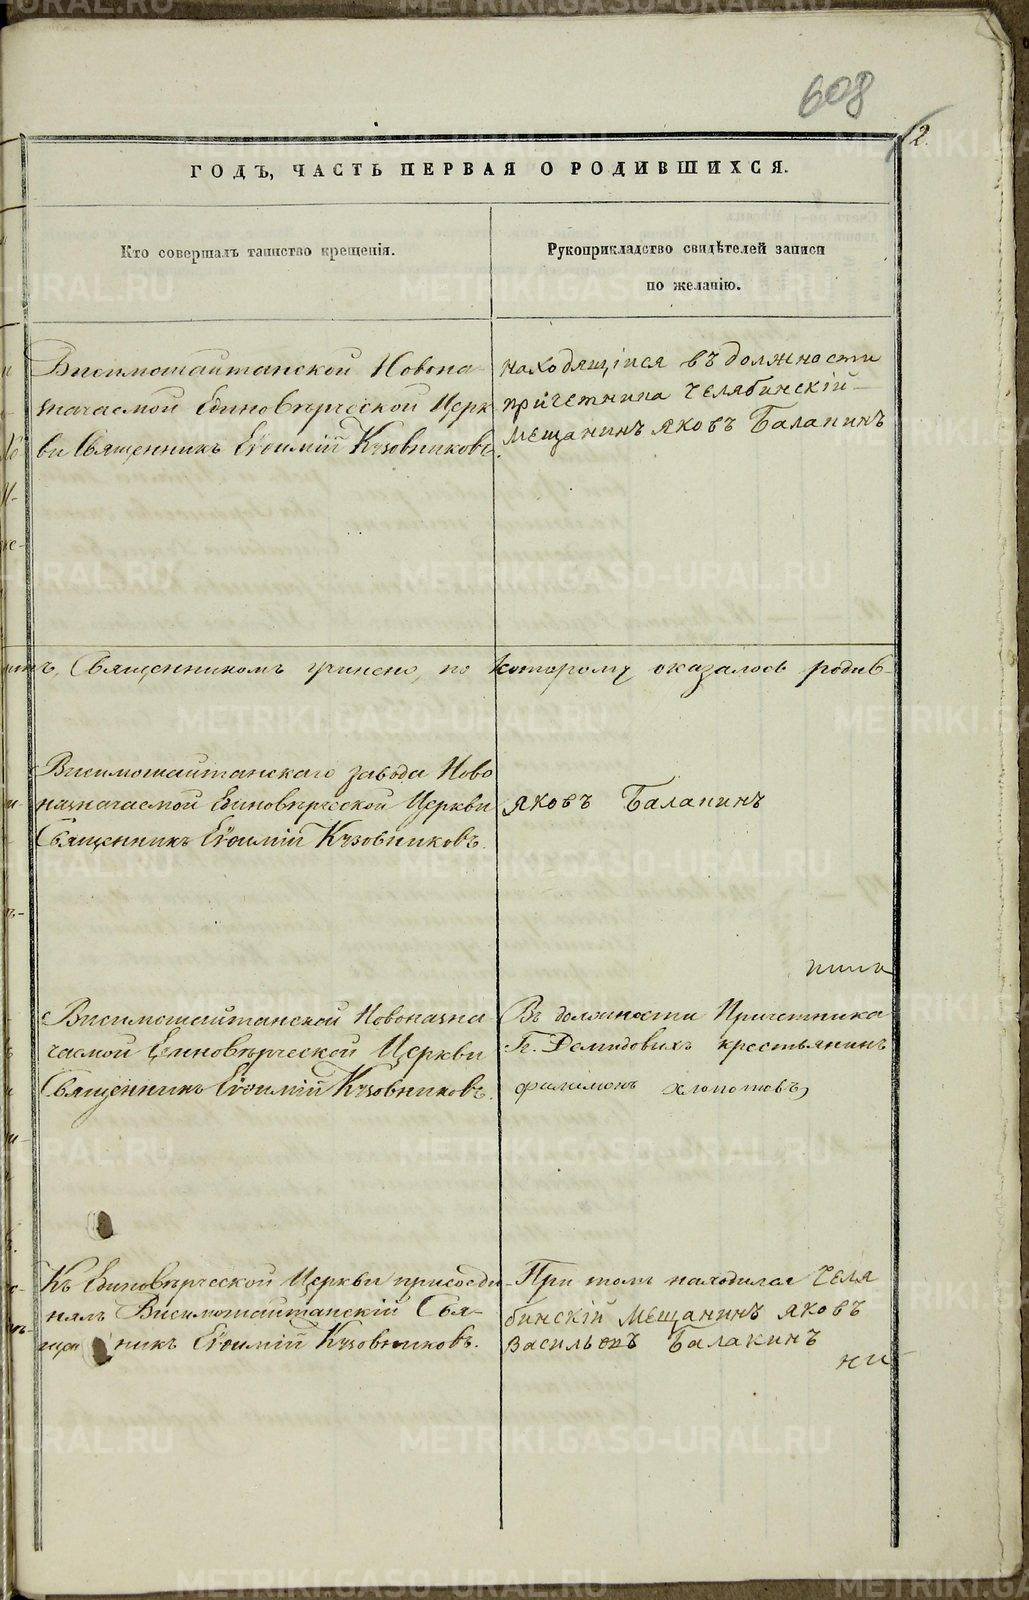 608
12.
ГОДЪ, ЧАСТЬ ПЕРВАЯ О РОДИВШИХСЯ.
Кто совершалъ таинство крещенія.
Рукоприкладство свидѣтелей записи
по желанію.
Висимошайтанской Новона-
значаемой Единовѣрческой Церк
ви Священникъ Евѳимій Кузовниковъ.
находящійся въ должности
причетника Челябинскій
мещанинъ яковъ Балакинъ
Священникомъ учинено, по которому оказалось родив-
Висимошайтанскаго завода Ново
назначаемой Единовѣрческой Церкви
Священникъ Евѳимій Кузовниковъ.
яковъ Балакинъ
Висимошайтанской Новоназна-
чаемой Единовѣрческой Церкви
Священникъ Евѳимій Кузовниковъ.
Въ должности Причетника
Гг. Демидовихъ крестьянинъ
филимонъ хлопотовъ
Къ Единовѣрческой Церкви присоеди-
нялъ Висимошайтанскій Свя-
щенникъ Евѳимій Кузовниковъ.
При томъ находился Челя
бинскій мещанинъ яковъ
Васильевъ Балакинъ
METRIKI.GASO-URAL.RU